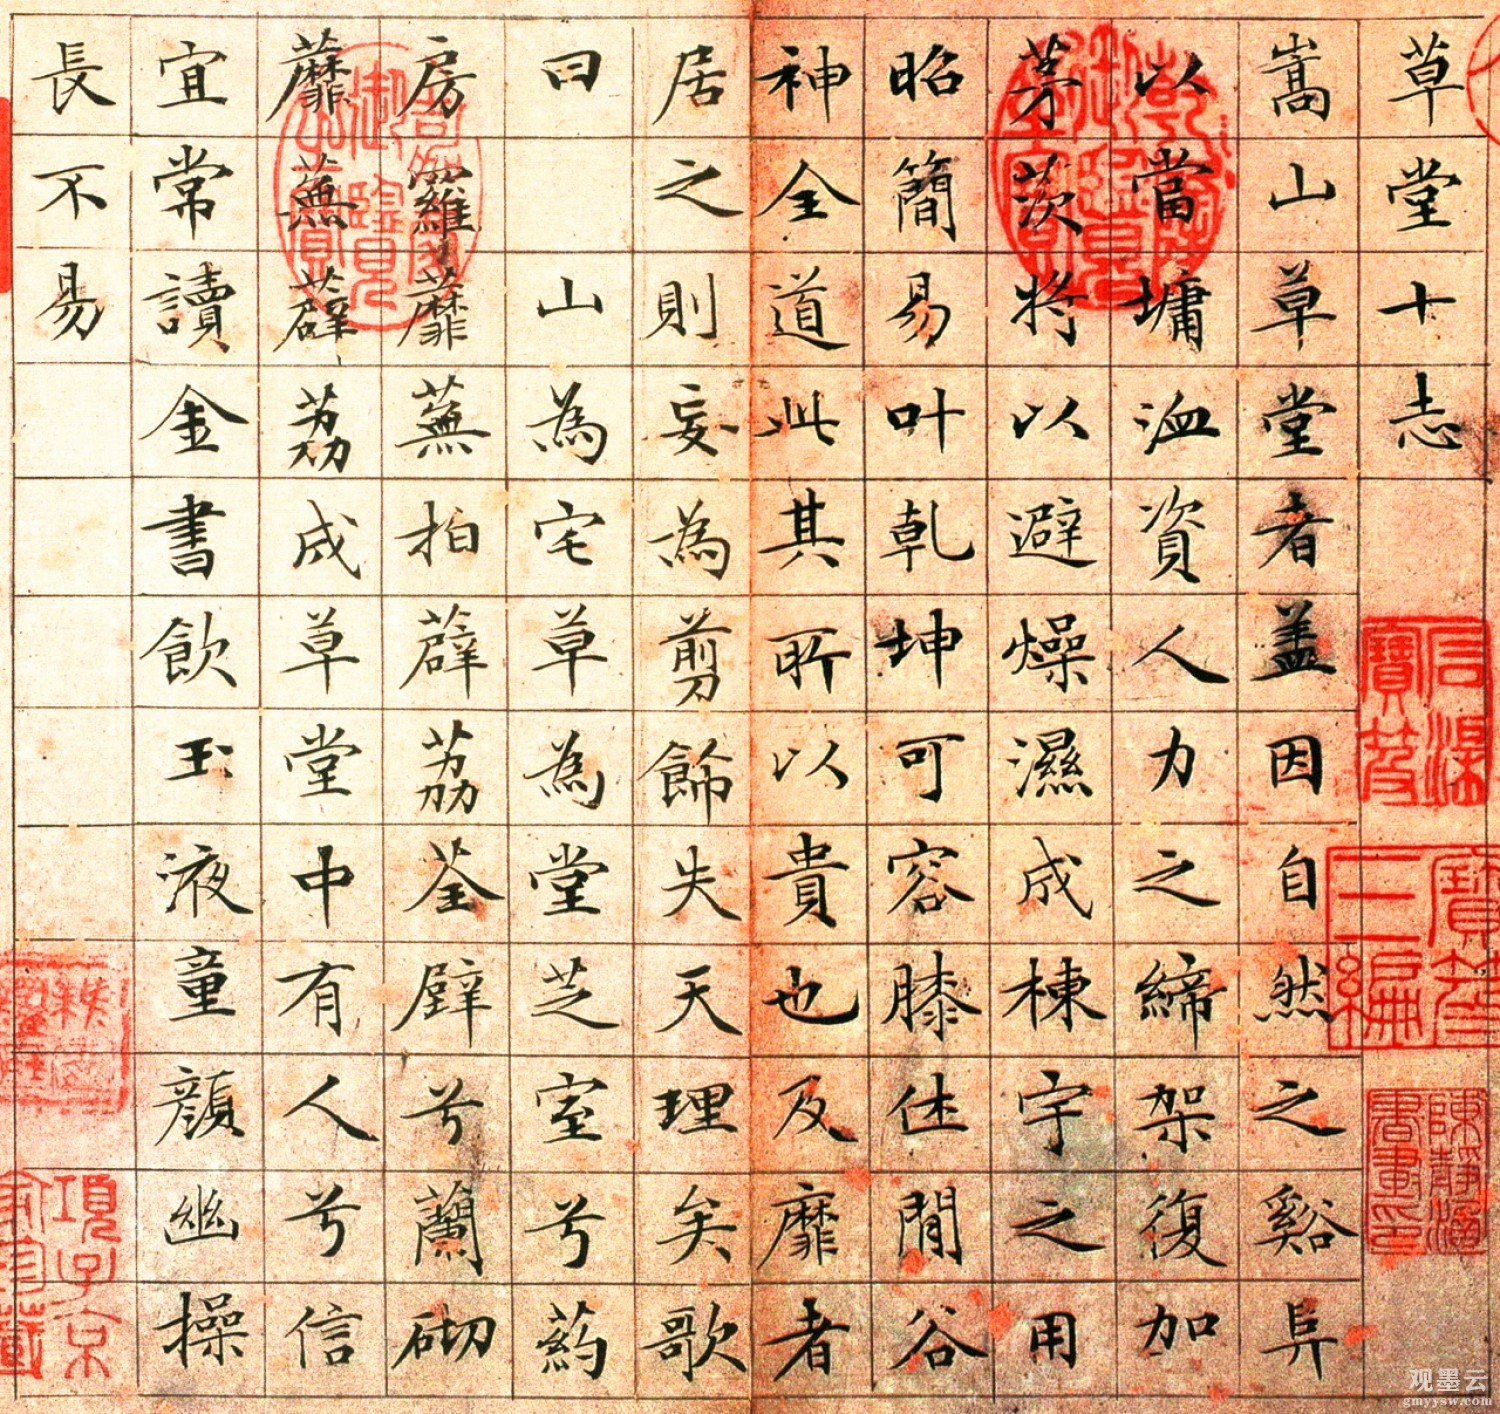 草堂十志
嵩山草堂者盖因自然之谿阜
以當墉洫資人力之締架復加
茅茨将以避燥濕成棟宇之用
昭簡易叶乾坤可容膝休閒谷
神全道此其所以貴也及靡者
居之則妄為剪飾失天理矣歌
曰 山為宅草為堂芝室兮葯
房羅蘼蕪拍薜荔荃壁兮蘭砌
蘼蕪薜荔成草堂中有人兮信
宜常讀金書飲玉液童顔幽操
長不易
石渠寶笈
寶笈三編
嘉慶御覽之寶
項子京家珍藏
观墨云
gmyysw.com